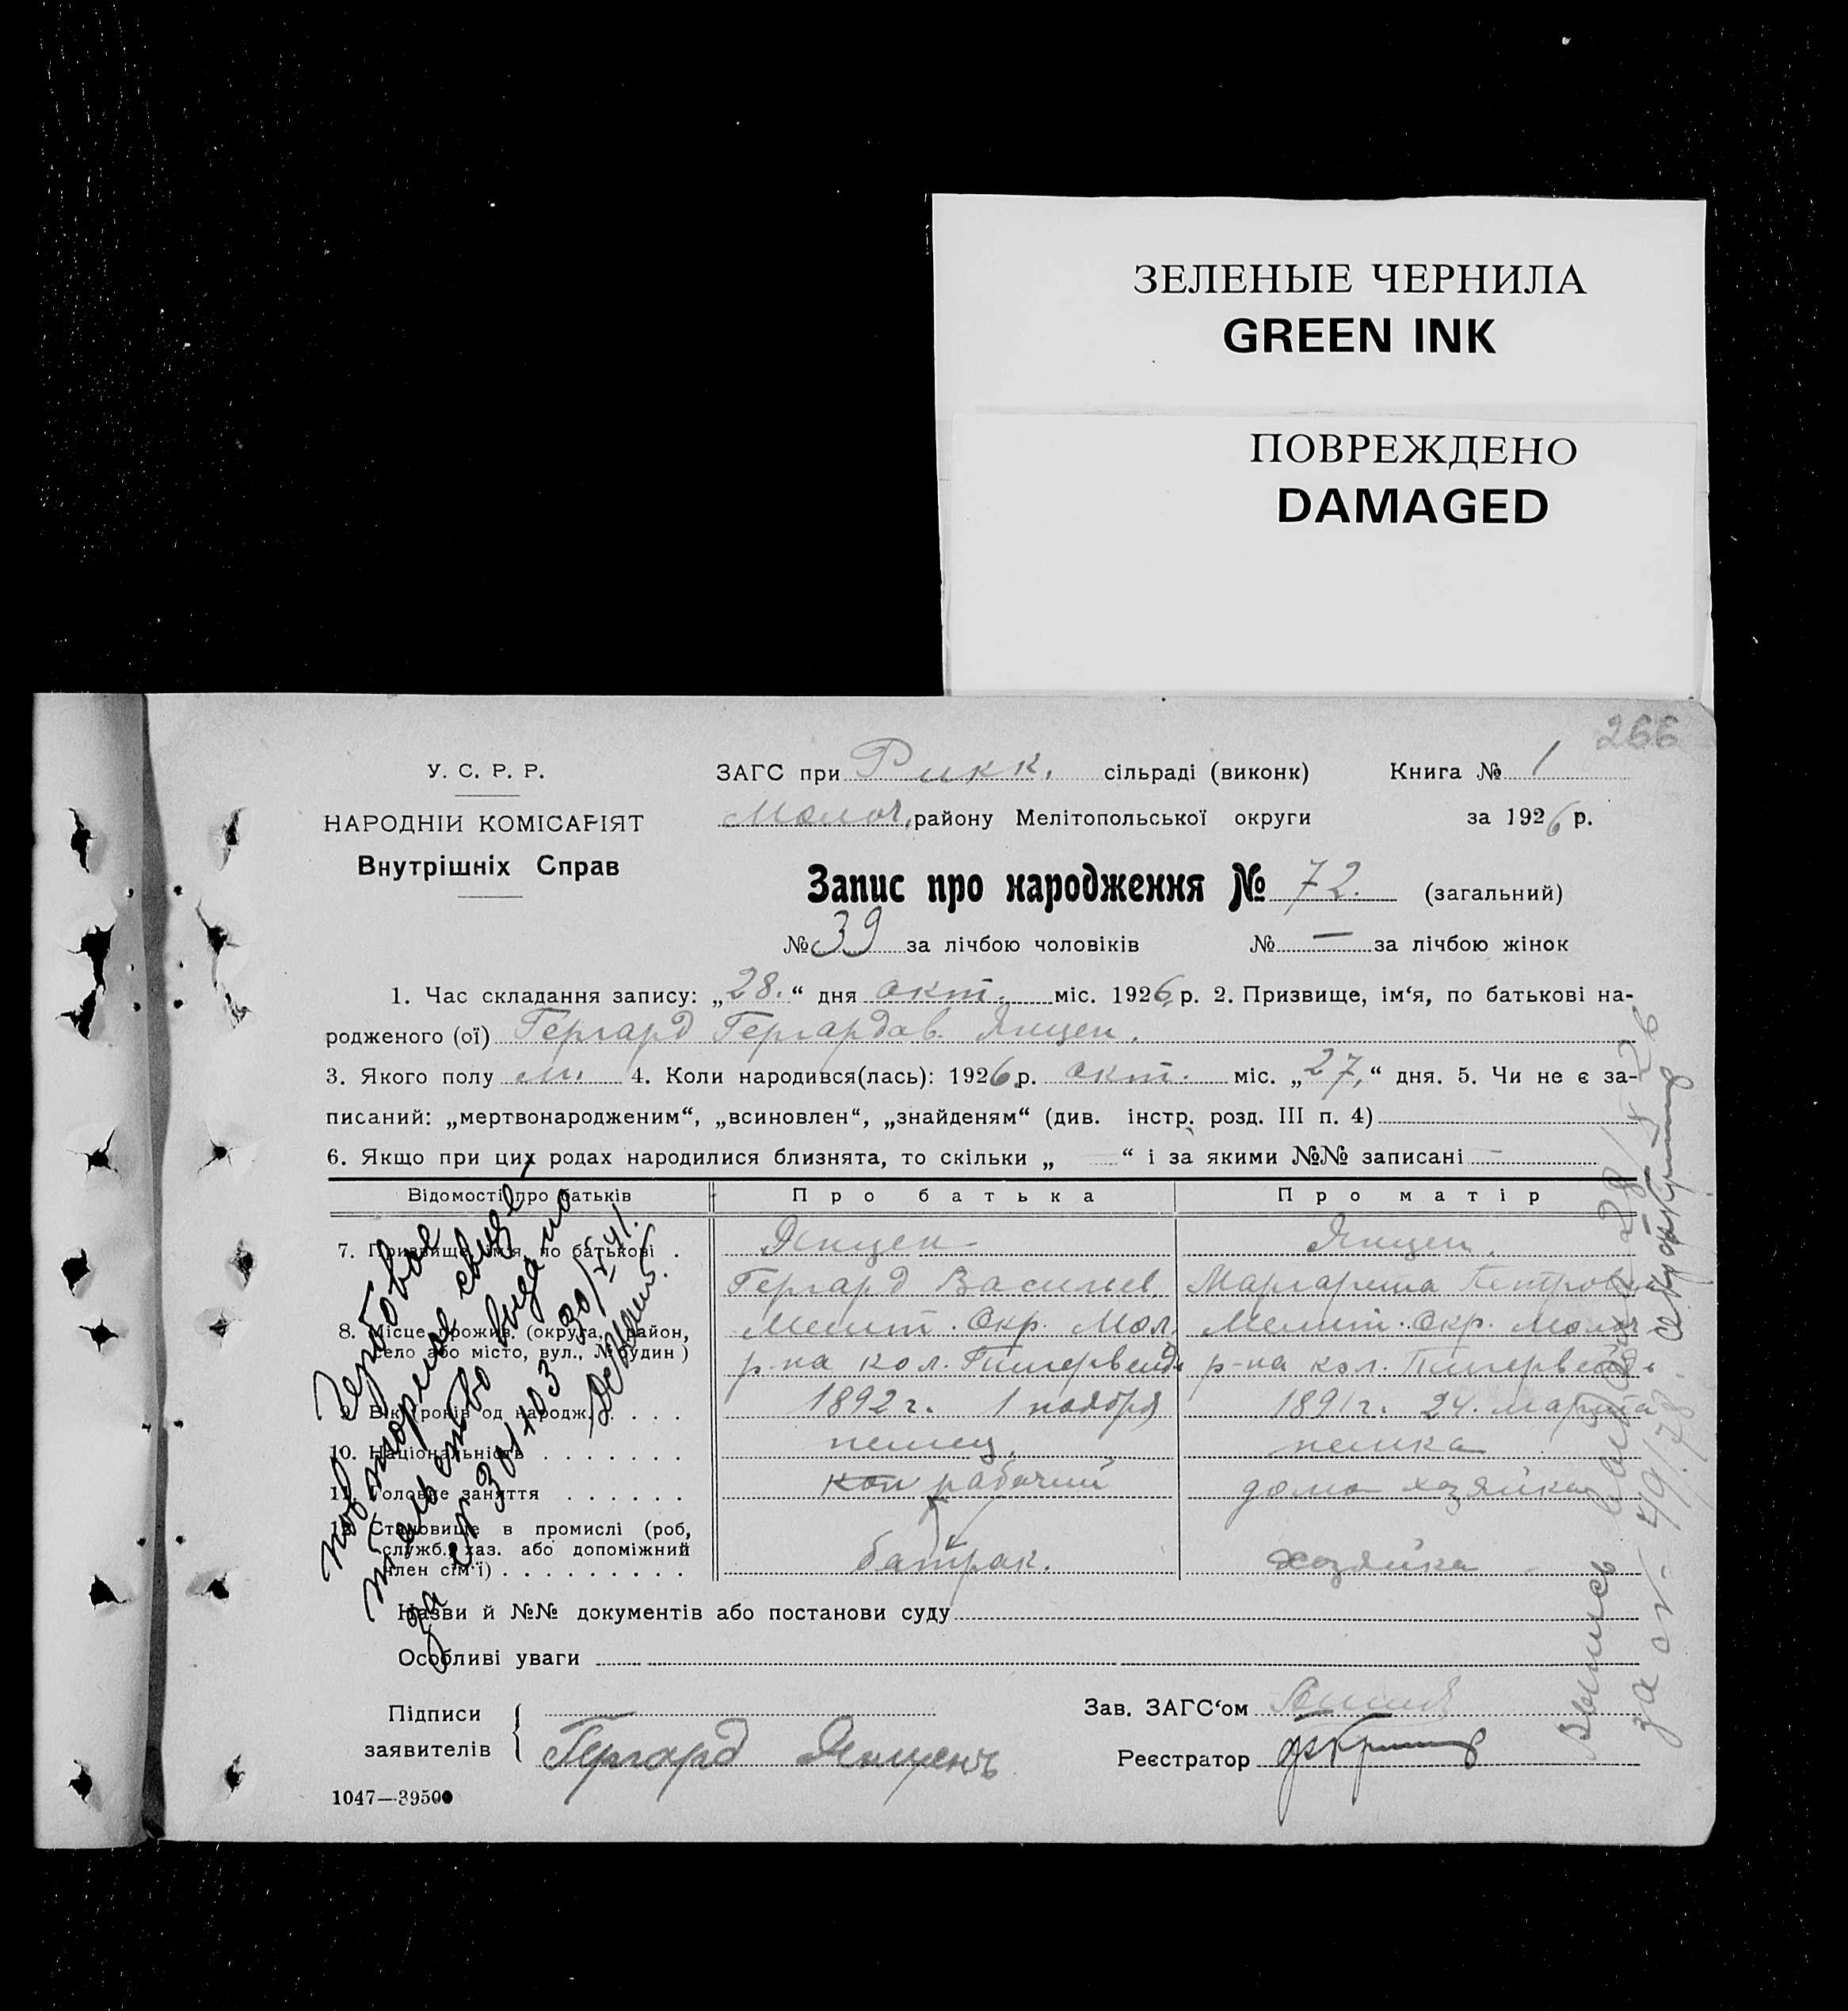 ЗЕЛЕНЫЕ ЧЕРНИЛА
GREEN INK
ПОВРЕЖДЕНО
DAMAGED
266
У. С. Р. Р.
НАРОДНІИ КОМІСАРІЯТ
Внутрішніх Справ
ЗАГС при Рикк. сільраді (виконк) Книга № 1
Молоч. району Мелітопольської округи за 1926 р.
Запис про народження № 72. (загальний)
№ 39 за лічбою чоловіків № — за лічбою жінок
1. Час складання запису: „28.“ дня окт. міс. 1926 р. 2. Призвище, ім‘я, по батькові на-
родженого (ої) Гергард Гергардов. Янцен.
3. Якого полу м. 4. Коли народився(лась): 1926 р. окт. міс. „27,“ дня. 5. Чи не є за-
писаний: „мертвонародженим“, „всиновлен“, „знайденям“ (див. інстр. розд. III п. 4)
6. Якщо при цих родах народилися близнята, то скільки „ — “ і за якими №№ записані —
Відомості про батьків Про батька Про матір
7. Призвище, ім‘я, по батькові . Янцен Янцен.
Гергард Васильев. Маргарита Петровна
8. Місце прожив. (округа, район, Мелит. Окр. Мол. Мелит. Окр. Молоч
село або місто, вул., № будин) р-на кол. р-на кол.
9. Вік (років од народж.) . . . . 1892 г. 1 ноября 1891 г. 24. марта
10. Національність . . . . . . . немец. немка
11. Головне заняття . . . . . . рабочий дома хозяйка
12. Становище в промислі (роб,
служб., хаз. або допоміжний батрак. хозяйка
член сім‘ї) . . . . . . . . .
Назви й №№ документів або постанови суду
Особливі уваги
Підписи
заявителів Гергард Янценъ
Зав. ЗАГС‘ом
Реєстратор
1047—39500
Гербовое
повторное свиде-
тельство выдано
за № 30/X 41.
Выпись выдана 28/X 26
за № 49/78.